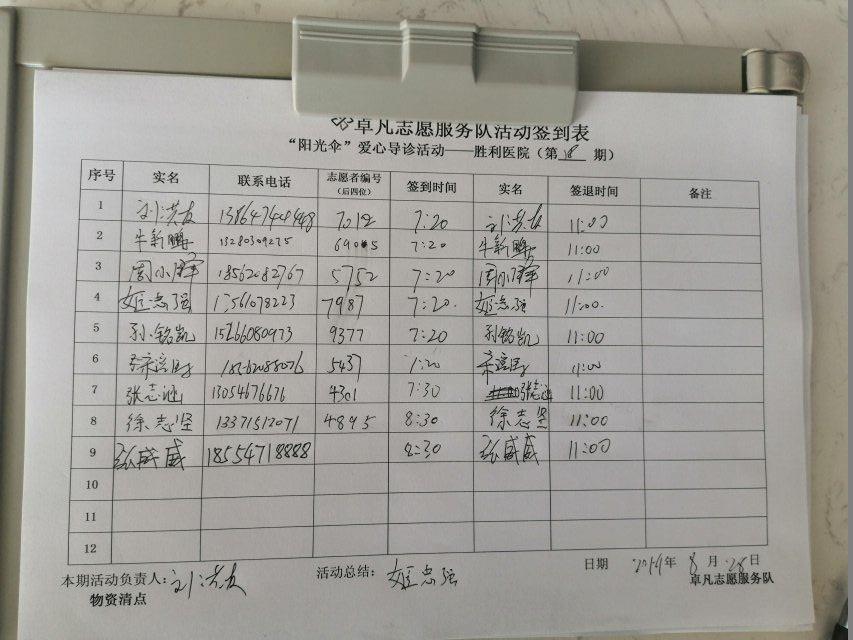 卓凡志愿服务队活动签到表
“阳光伞”爱心导诊活动——胜利医院（第18期）
序号 实名 联系电话 志愿者编号（后四位） 签到时间 实名 签退时间 备注
1 刘洪友 13864744448 7012 7:20 刘洪友 11:00
2 牛新鹏 13280309275 7:20 牛新鹏 11:00
3 周小 18562082767 5752 7:20 周小 11:00
4 姬忠强 17561078223 7987 7:20. 姬忠强 11:00.
5 孙铭凯 15266080973 9377 7:20 孙铭凯 11:00
6 5437 7:20 11:00
7 张志涵 13054676676 4301 7:30 张志涵 11:00
8 徐志坚 13371512071 4895 8:30 徐志坚 11:00
9 张威威 18554718888 8:30 张威威 11:00
10
11
12
本期活动负责人：刘洪友 活动总结：姬忠强 日期 2019年8月28日
物资清点 卓凡志愿服务队